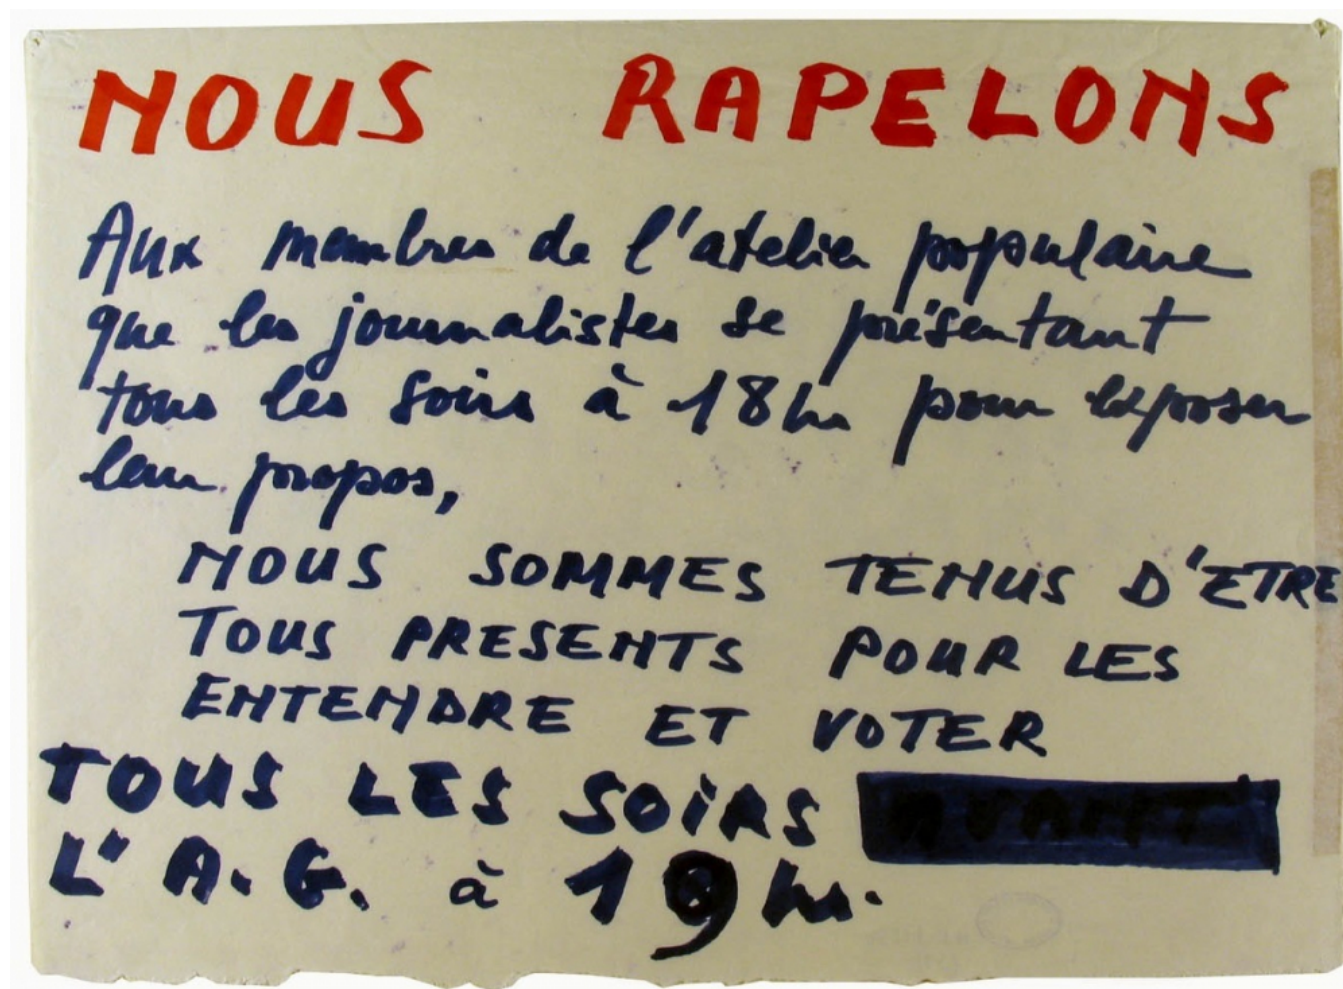 NOUS RAPELONS
Aux membres de l'atelier populaire
que les journalistes se présentant
tous les soirs à 18 hrs pour exposer
leur propos,
NOUS SOMMES TENUS D'ETRE
TOUS PRESENTS POUR LES
ENTENDRE ET VOTER
TOUS LES SOIRS AVANT
L'A.G. à 19 hrs.